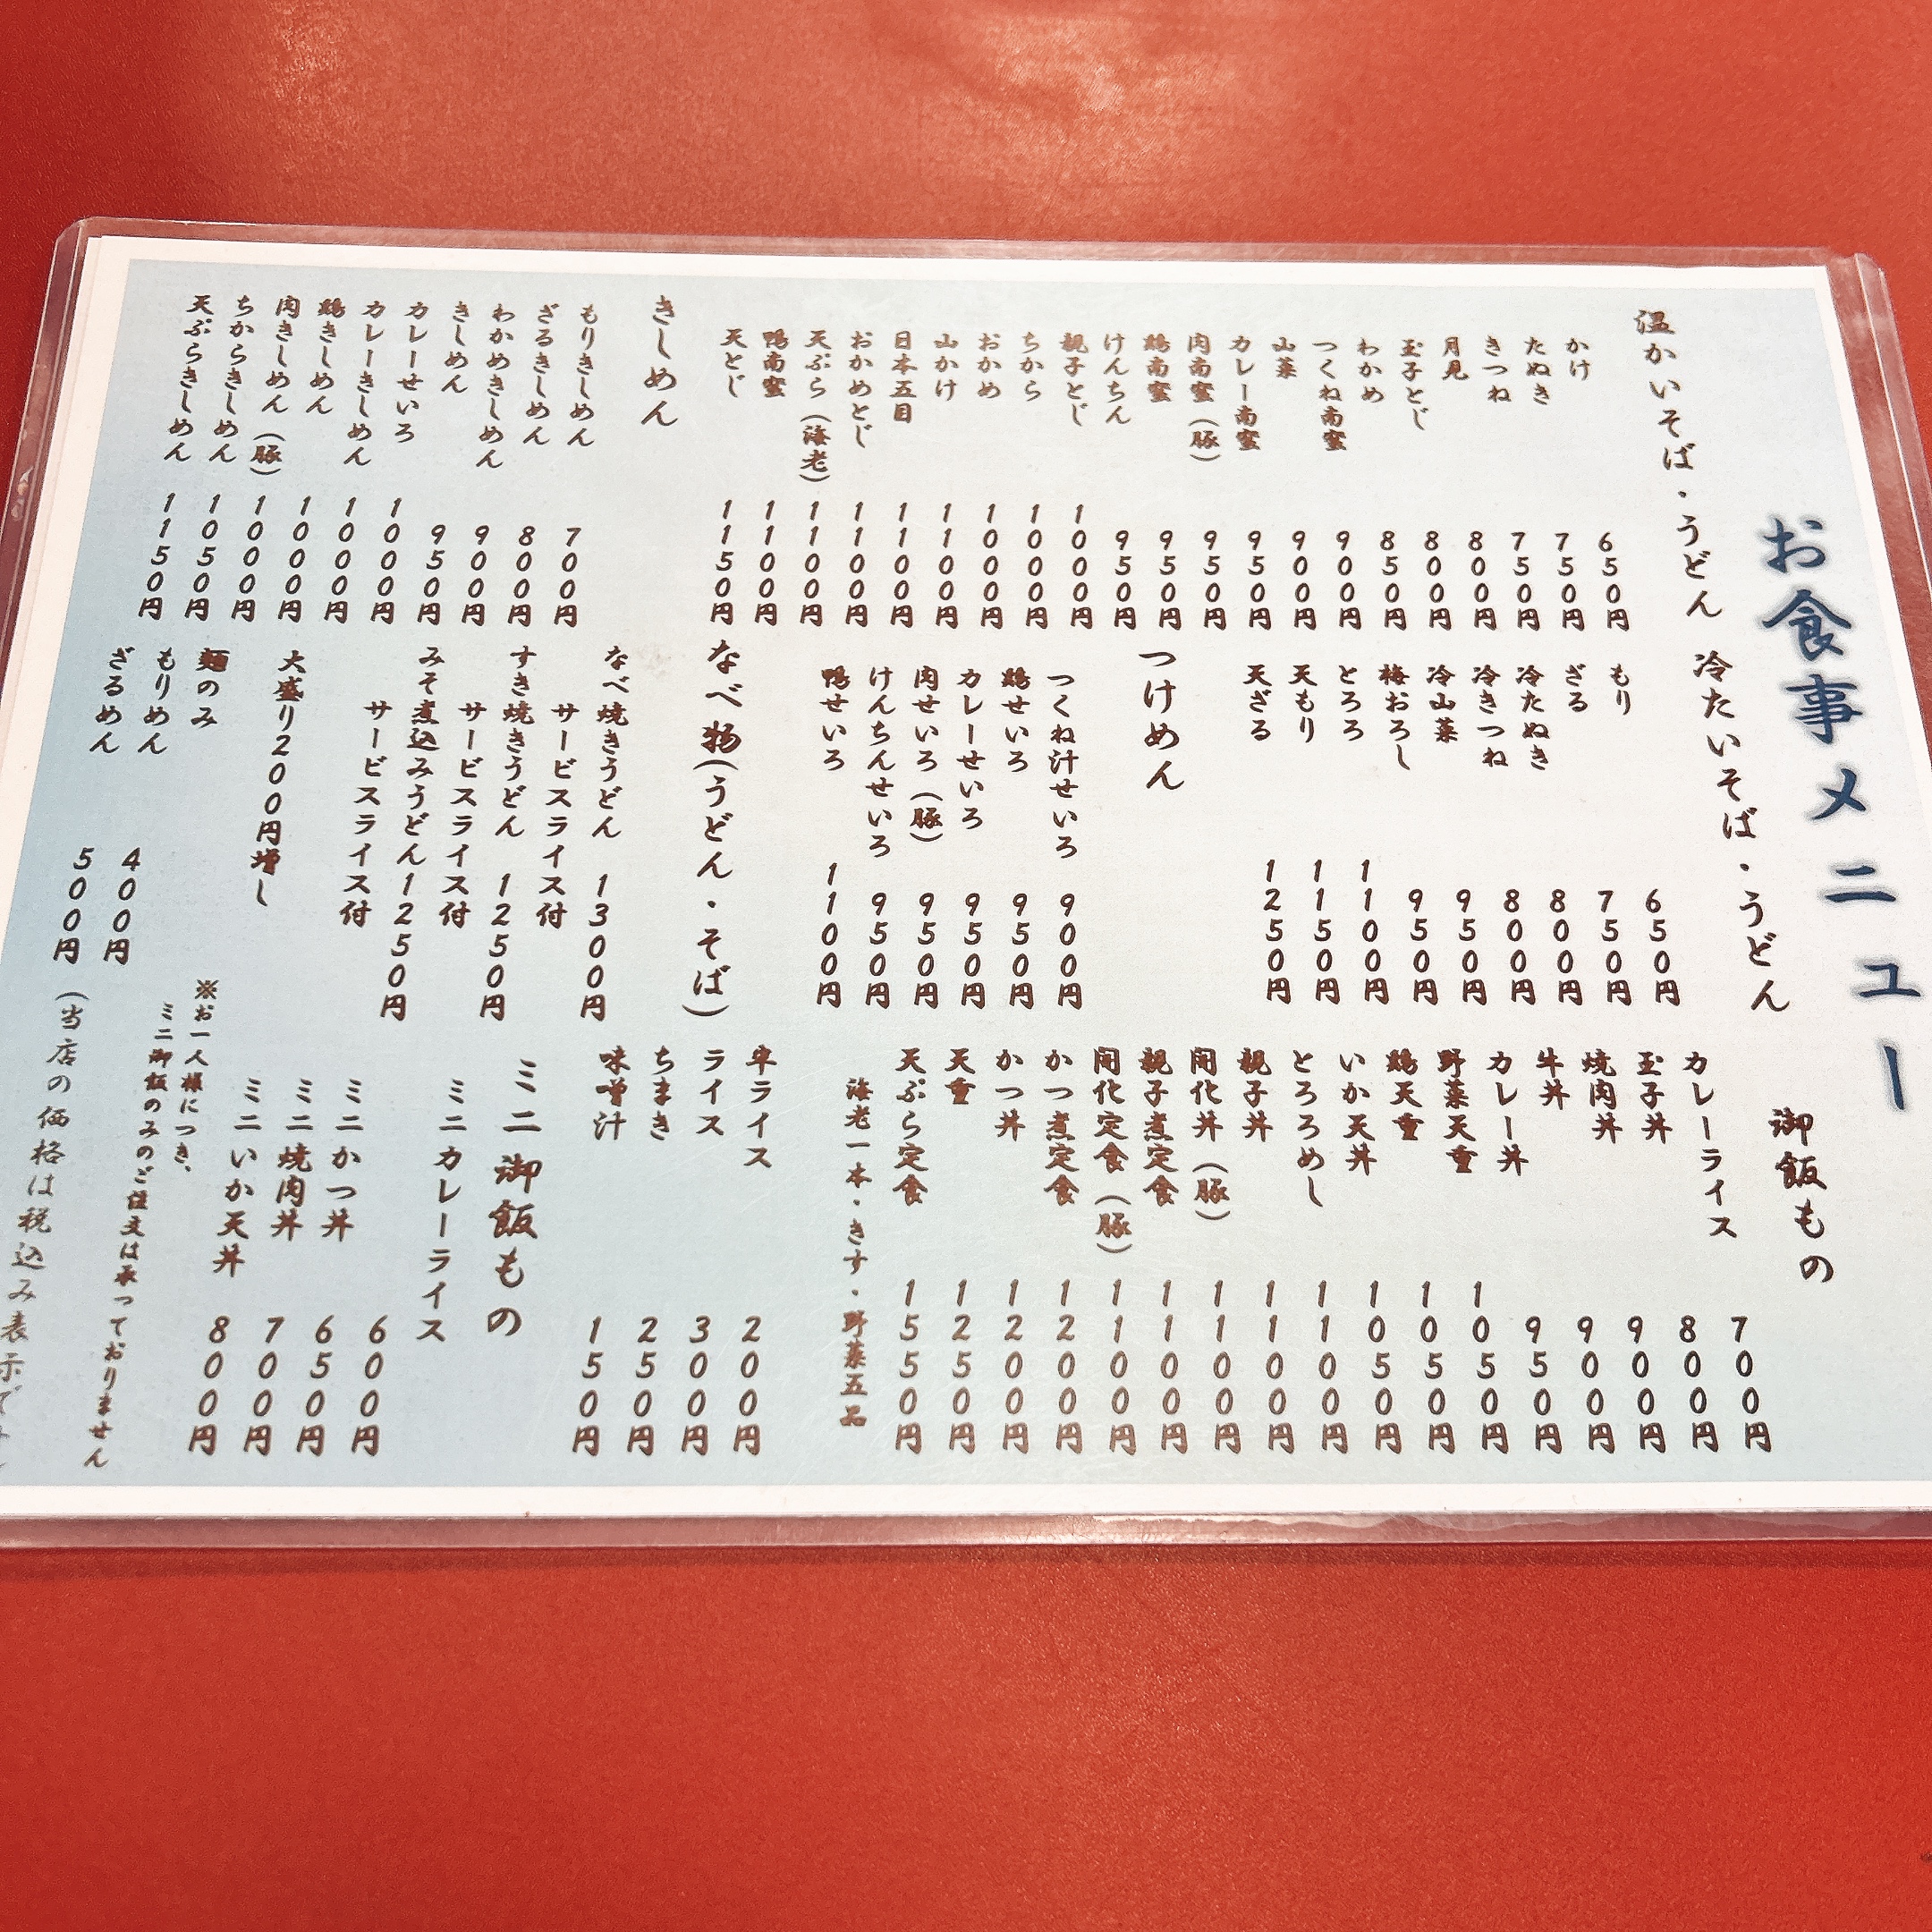 お食事メニュー
温かいそば・うどん
かけ 650円
たぬき 750円
きつね 750円
月見 800円
玉子とじ 800円
わかめ 850円
つくね南蛮 900円
山菜 900円
カレー南蛮 950円
肉南蛮（豚） 950円
鶏南蛮 950円
けんちん 950円
親子とじ 1000円
ちから 1000円
おかめ 1000円
山かけ 1100円
日本五目 1100円
おかめとじ 1100円
天ぷら（海老） 1100円
鴨南蛮 1100円
天とじ 1150円
きしめん
もりきしめん 700円
ざるきしめん 800円
わかめきしめん 900円
きしめん 950円
カレーせいろ 1000円
カレーきしめん 1000円
鶏きしめん 1000円
肉きしめん（豚） 1000円
ちからきしめん 1050円
天ぷらきしめん 1150円
冷たいそば・うどん
もり 650円
ざる 750円
冷たぬき 800円
冷きつね 800円
冷山菜 950円
梅おろし 950円
とろろ 1100円
天もり 1150円
天ざる 1250円
つけめん
つくね汁せいろ 900円
鶏せいろ 950円
カレーせいろ 950円
肉せいろ（豚） 950円
けんちんせいろ 950円
鴨せいろ 1100円
なべ物（うどん・そば）
なべ焼きうどん 1300円
サービスライス付
すき焼きうどん 1250円
サービスライス付
みそ煮込みうどん 1250円
サービスライス付
大盛り200円増し
麺のみ
もりめん 400円
ざるめん 500円
御飯もの
カレーライス 700円
玉子丼 800円
焼肉丼 900円
牛丼 900円
カレー丼 950円
野菜天重 1050円
鶏天重 1050円
いか天丼 1050円
とろろめし 1100円
親子丼 1100円
開化丼（豚） 1100円
親子煮定食 1100円
開化定食（豚） 1100円
かつ煮定食 1200円
かつ丼 1200円
天重 1250円
天ぷら定食 1550円
海老一本・きす・野菜五品
半ライス 200円
ライス 300円
ちまき 250円
味噌汁 150円
ミニ御飯もの
ミニカレーライス 600円
ミニかつ丼 650円
ミニ焼肉丼 700円
ミニいか天丼 800円
※お一人様につき、
ミニ御飯のみのご注文は承っておりません
（当店の価格は税込み表示で